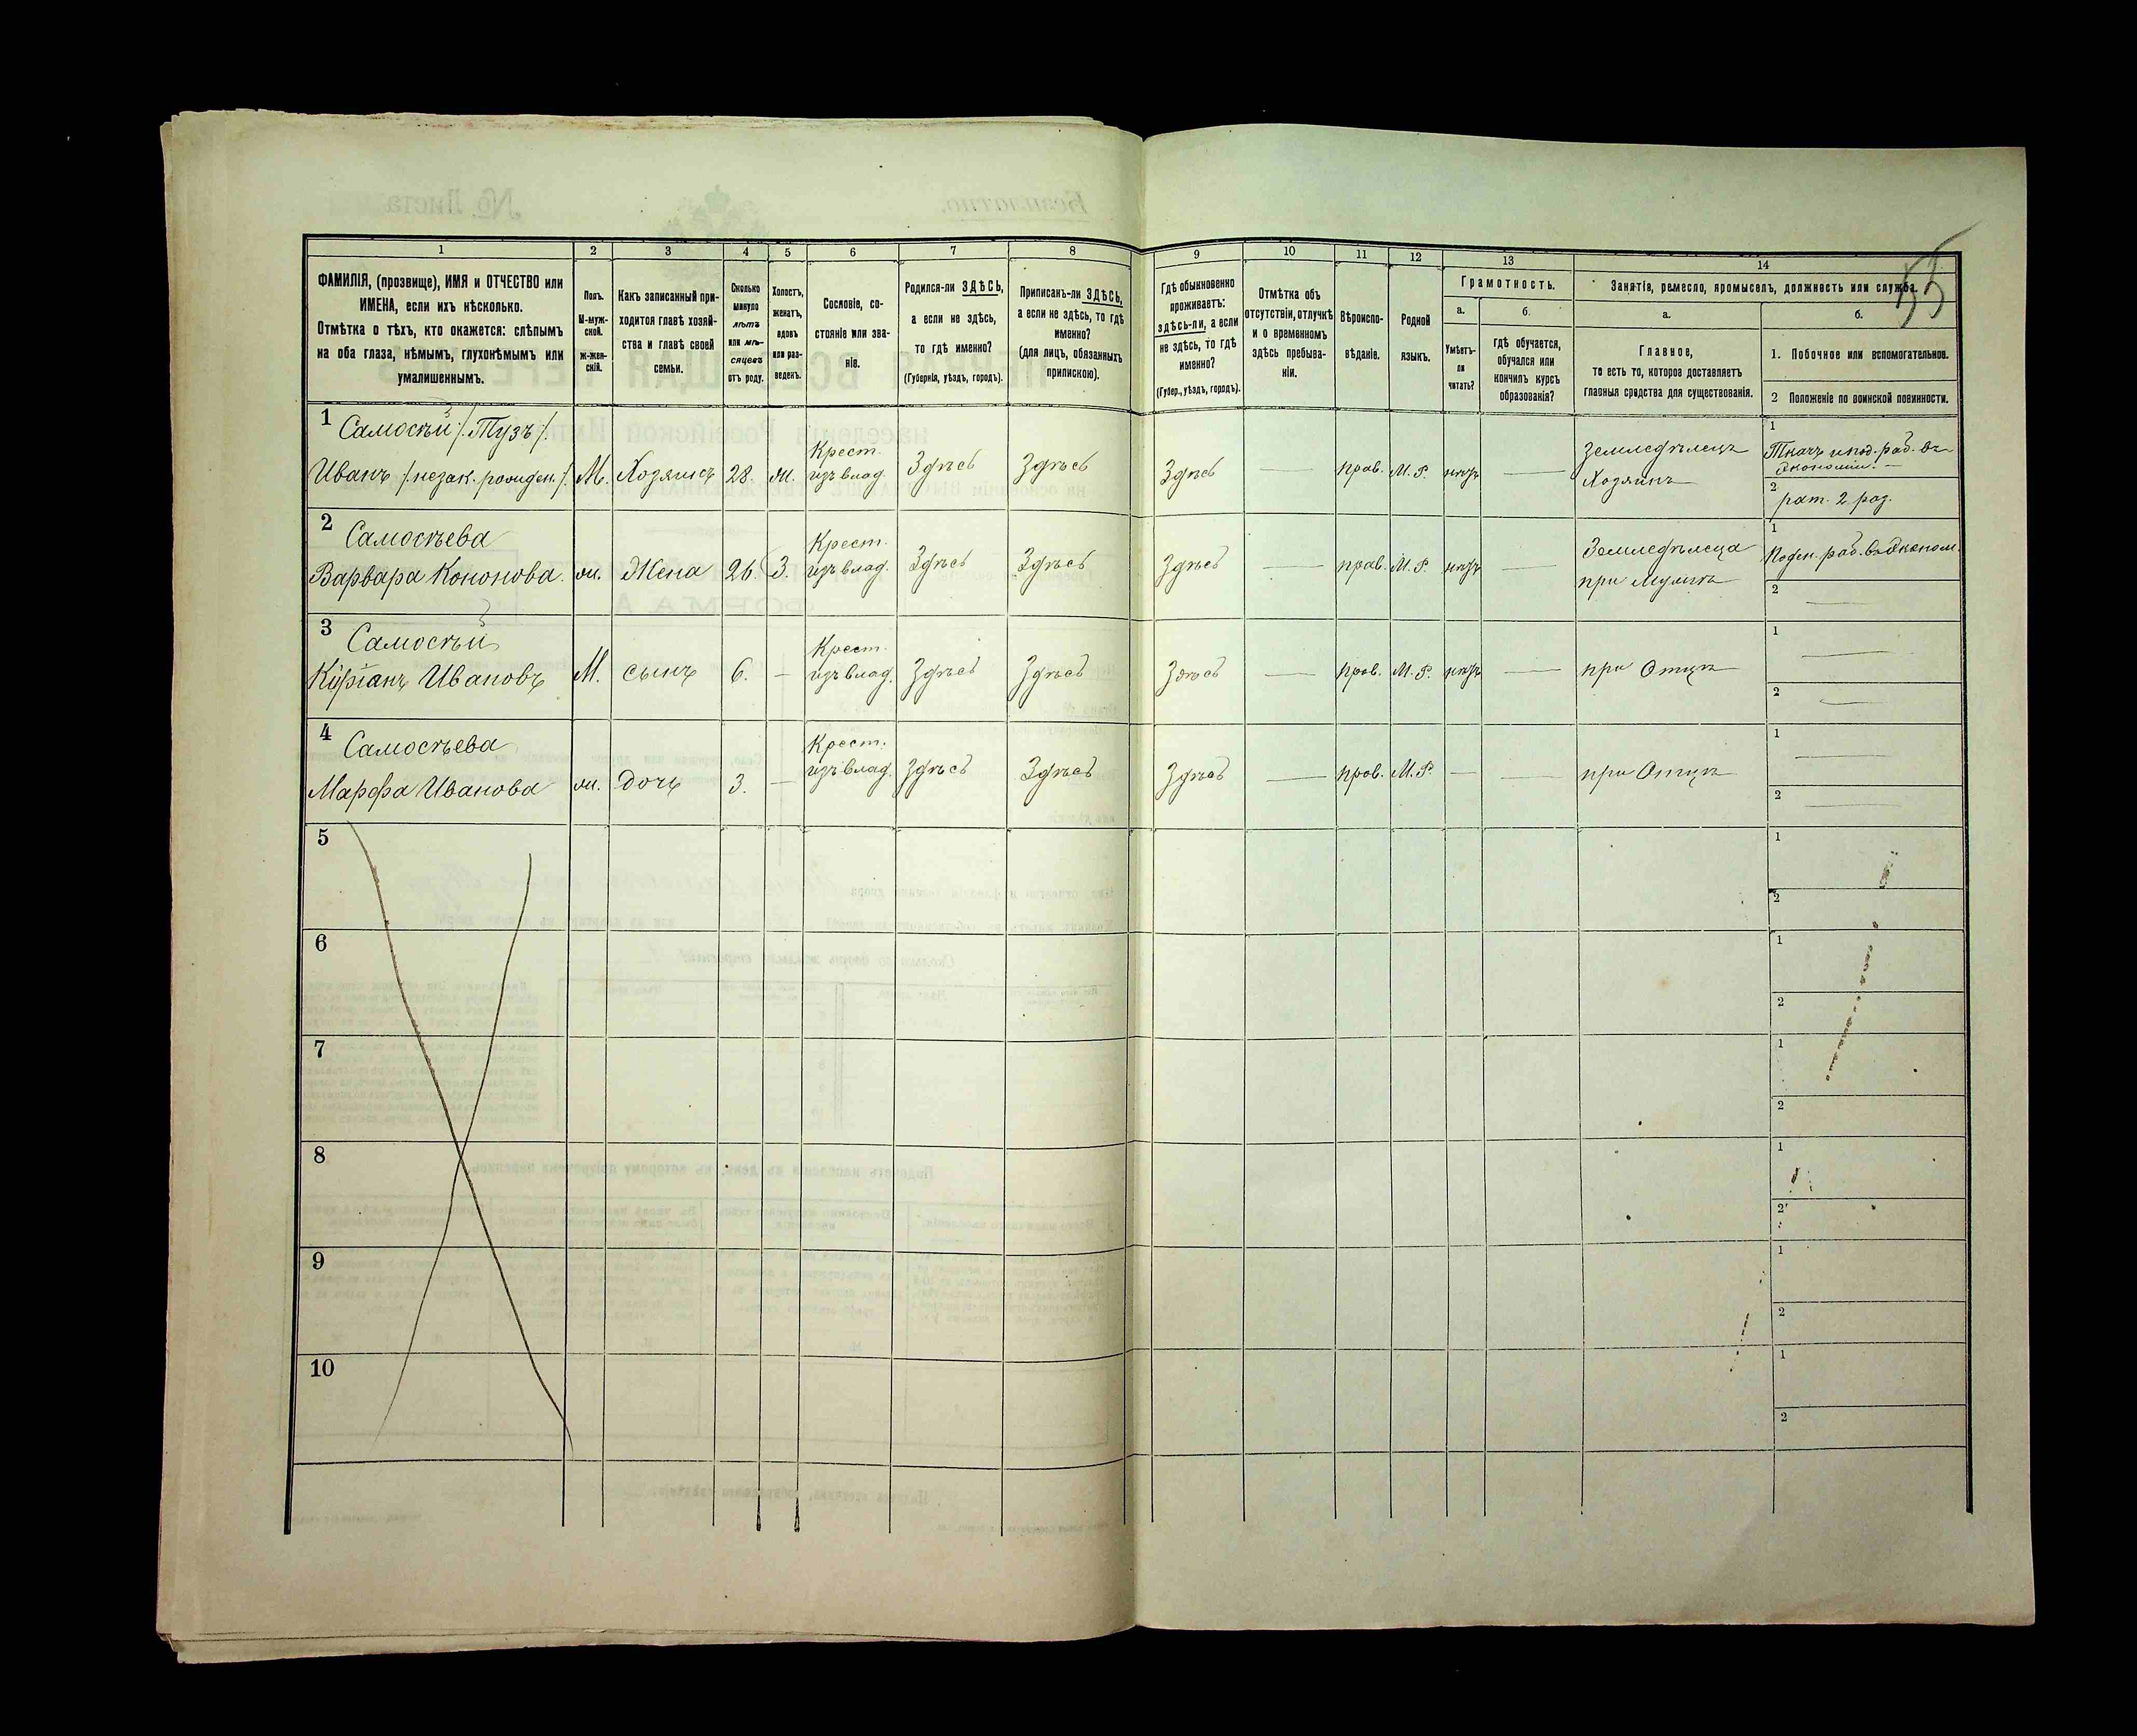 55
1 2 3 4 5 6 7 8 9 10 11 12 13 14
ФАМИЛІЯ, (прозвище), ИМЯ и ОТЧЕСТВО или
ИМЕНА, если ихъ нѣсколько.
Отмѣтка о тѣхъ, кто окажется: слѣпымъ
на оба глаза, нѣмымъ, глухонѣмымъ или
умалишеннымъ.
Полъ.
М-муж-
ской.
ж-жен-
скій.
Какъ записанный при-
ходится главѣ хозяй-
ства и главѣ своей
семьи.
Сколько
минуло
лѣтъ
или мѣ-
сяцевъ
отъ роду.
Холостъ,
женатъ,
вдовъ
или раз-
веденъ.
Сословіе, со-
стояніе или зва-
ніе.
Родился-ли ЗДѢСЬ,
а если не здѣсь,
то гдѣ именно?
(Губернія, уѣздъ, городъ).
Приписанъ-ли ЗДѢСЬ,
а если не здѣсь, то гдѣ
именно?
(для лицъ, обязанныхъ
припискою).
Гдѣ обыкновенно
проживаетъ:
здѣсь-ли, а если
не здѣсь, то гдѣ
именно?
(Губер., уѣздъ, городъ).
Отмѣтка объ
отсутствіи, отлучкѣ
и о временномъ
здѣсь пребыва-
ніи.
Вѣроиспо-
вѣданіе.
Родной
языкъ.
Грамотность.
а.
Умѣетъ-
ли
читать?
б.
Гдѣ обучается,
обучался или
кончилъ курсъ
образованія?
Занятіе, ремесло, промыселъ, должность или служба.
а.
Главное,
то есть то, которое доставляетъ
главныя средства для существованія.
б.
1. Побочное или вспомогательное.
2 Положеніе по воинской повинности.
1 Самосѣй /. Тузъ /.
Иванъ /. незак. рожден. /. М. Хозяинъ 28. ж. Крест.
изъ влад. Здѣсь Здѣсь Здѣсь — прав. М. Р. нѣтъ — Земледѣлецъ
Хозяинъ
1 Ткачъ и под. раб. въ
Экономіи. —
2 рат. 2 раз.
2 Самосѣева
Варвара Кононова. ж. Жена 26. З. Крест.
изъ влад. Здѣсь Здѣсь Здѣсь — прав. М. Р. нѣтъ — Земледѣлица
при Мужѣ
1 Поден. раб. въ Эконом.
2 —
3 Самосѣй
Кипріанъ Ивановъ М. сынъ 6. — Крест.
изъ влад. Здѣсь Здѣсь Здѣсь — прав. М. Р. нѣтъ — при Отцѣ
1 —
2 —
4 Самосѣева
Марфа Иванова ж. Дочь 3. — Крест.
изъ влад. Здѣсь Здѣсь Здѣсь — прав. М. Р. — — при Отцѣ
1 —
2 —
5
1
2
6
1
2
7
1
2
8
1
2
9
1
2
10
1
2